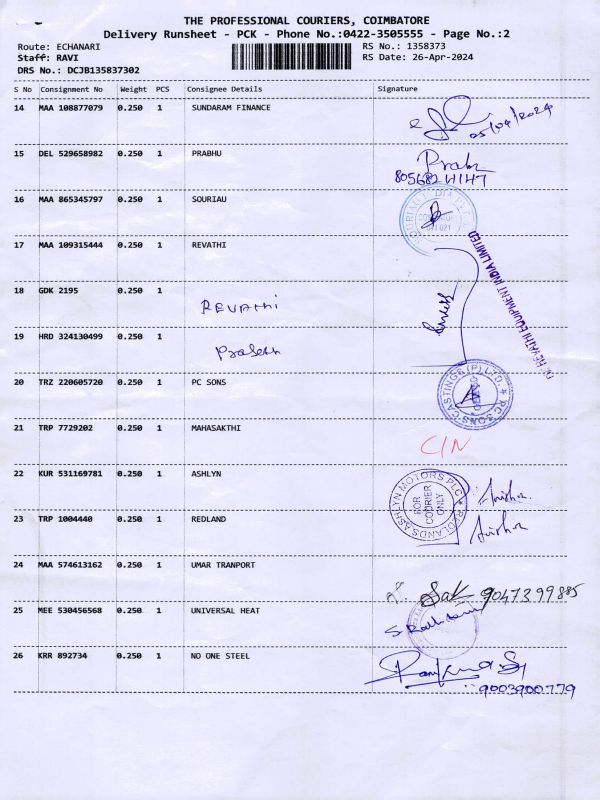 THE PROFESSIONAL COURIERS, COIMBATORE
Delivery Runsheet - PCK - Phone No.:0422-3505555 - Page No.:2
Route: ECHANARI RS No.: 1358373
Staff: RAVI RS Date: 26-Apr-2024
DRS No.: DCJB135837302
S No Consignment No Weight PCS Consignee Details Signature
14 MAA 108877079 0.250 1 SUNDARAM FINANCE
15 DEL 529658982 0.250 1 PRABHU
16 MAA 865345797 0.250 1 SOURIAU
17 MAA 109315444 0.250 1 REVATHI
REVATHI EQUIPMENT INDIA LIMITED
18 GDK 2195 0.250 1 REVATHI
19 HRD 324130499 0.250 1 Prakash
20 TRZ 220605720 0.250 1 PC SONS
PC SONS CASTINGS (P) LTD.
21 TRP 7729202 0.250 1 MAHASAKTHI C/N
22 KUR 531169781 0.250 1 ASHLYN
REDLANDS ASHLYN MOTORS PLC
FOR COURIER ONLY
23 TRP 1004440 0.250 1 REDLAND
24 MAA 574613162 0.250 1 UMAR TRANPORT 9047399885
25 MEE 530456568 0.250 1 UNIVERSAL HEAT
26 KRR 892734 0.250 1 NO ONE STEEL
9003900779